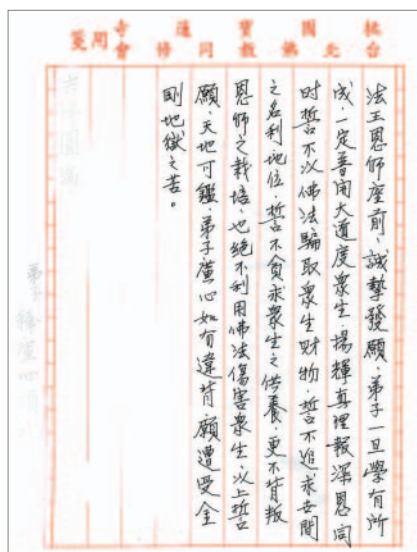 桃園寶蓮寺
台北佛教同修會
用箋
法王恩師座前，誠摯發願，弟子一旦學有所
成，一定普開大道度衆生，揚輝真理報深恩，同
时誓不以佛法騙取衆生财物，誓不追求世間
之名利地位，誓不貪求衆生之供養，更不背叛
恩師之栽培，也絕不利用佛法傷害衆生，以上誓
願，天地可鑑，弟子廣心如有違背，願遭受金
剛地獄之苦。
弟子